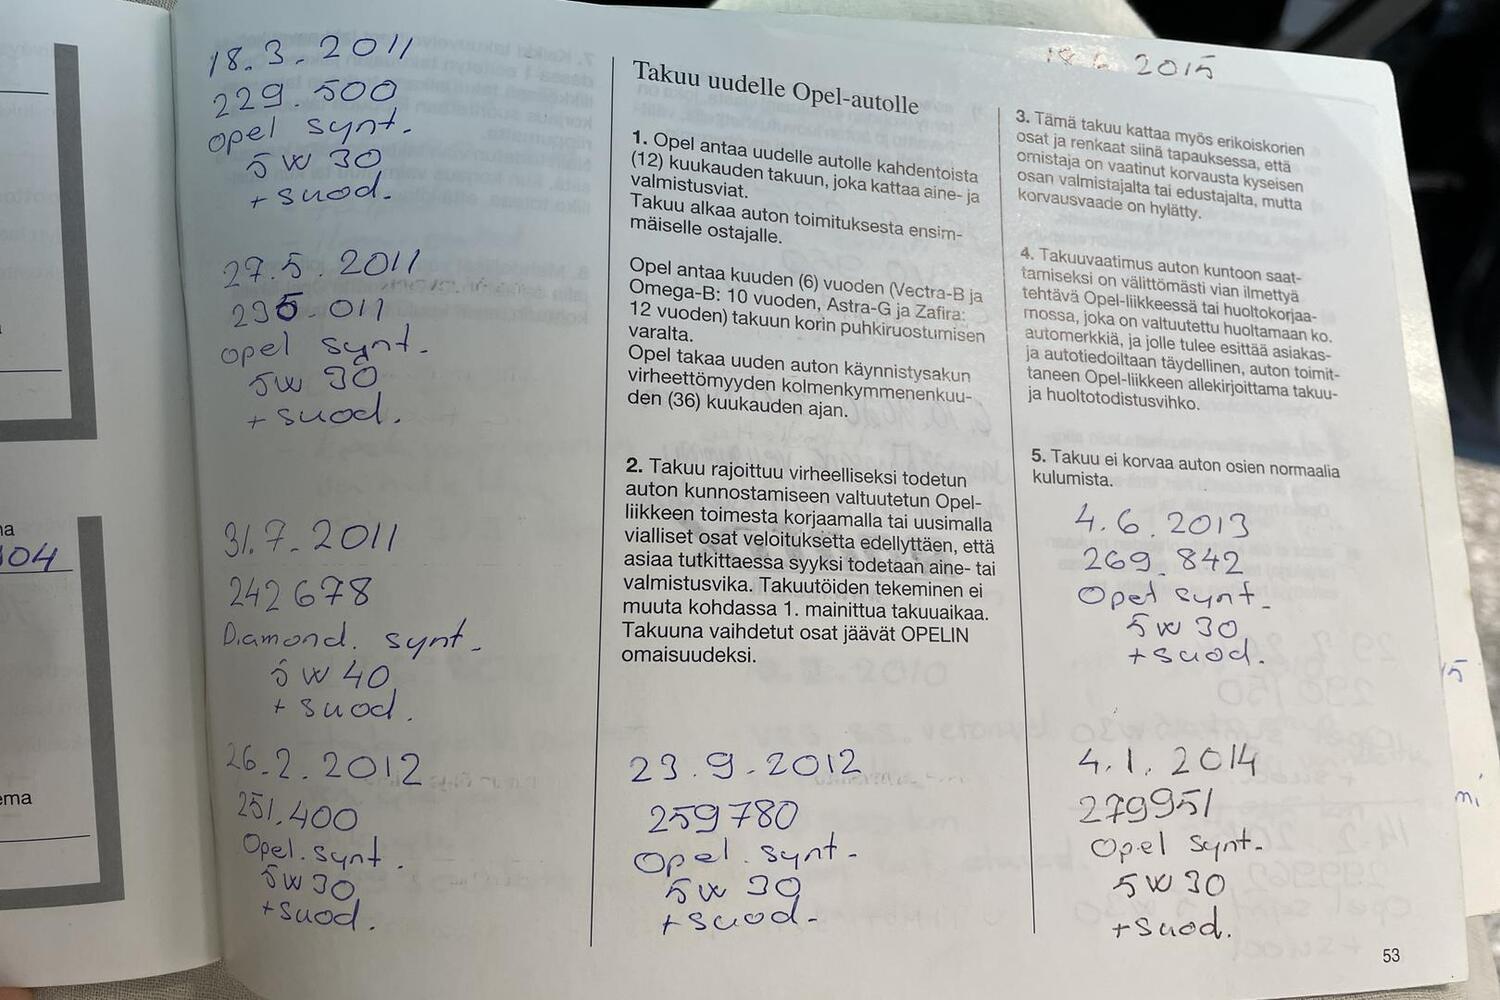 18.3.2011
229.500
Opel synt.
5W30
+suod.
27.5.2011
235.011
Opel synt.
5W30
+suod.
31.7.2011
242678
Diamond. synt.
5W40
+suod.
26.2.2012
251.400
Opel. synt.
5W30
+suod.
Takuu uudelle Opel-autolle
1. Opel antaa uudelle autolle kahdentoista
(12) kuukauden takuun, joka kattaa aine- ja
valmistusviat.
Takuu alkaa auton toimituksesta ensim-
mäiselle ostajalle.
Opel antaa kuuden (6) vuoden (Vectra-B ja
Omega-B: 10 vuoden, Astra-G ja Zafira:
12 vuoden) takuun korin puhkiruostumisen
varalta.
Opel takaa uuden auton käynnistysakun
virheettömyyden kolmenkymmenenkuu-
den (36) kuukauden ajan.
2. Takuu rajoittuu virheelliseksi todetun
auton kunnostamiseen valtuutetun Opel-
liikkeen toimesta korjaamalla tai uusimalla
vialliset osat veloituksetta edellyttäen, että
asiaa tutkittaessa syyksi todetaan aine- tai
valmistusvika. Takuutöiden tekeminen ei
muuta kohdassa 1. mainittua takuuaikaa.
Takuuna vaihdetut osat jäävät OPELIN
omaisuudeksi.
23.9.2012
259780
Opel. synt.
5W30
+suod.
2015
3. Tämä takuu kattaa myös erikoiskorien
osat ja renkaat siinä tapauksessa, että
omistaja on vaatinut korvausta kyseisen
osan valmistajalta tai edustajalta, mutta
korvausvaade on hylätty.
4. Takuuvaatimus auton kuntoon saat-
tamiseksi on välittömästi vian ilmettyä
tehtävä Opel-liikkeessä tai huoltokorjaa-
mossa, joka on valtuutettu huoltamaan ko.
automerkkiä, ja jolle tulee esittää asiakas-
ja autotiedoiltaan täydellinen, auton toimit-
taneen Opel-liikkeen allekirjoittama takuu-
ja huoltotodistusvihko.
5. Takuu ei korvaa auton osien normaalia
kulumista.
4.6.2013
269.842
Opel synt.
5W30
+suod.
4.1.2014
279951
Opel synt.
5W30
+suod.
53